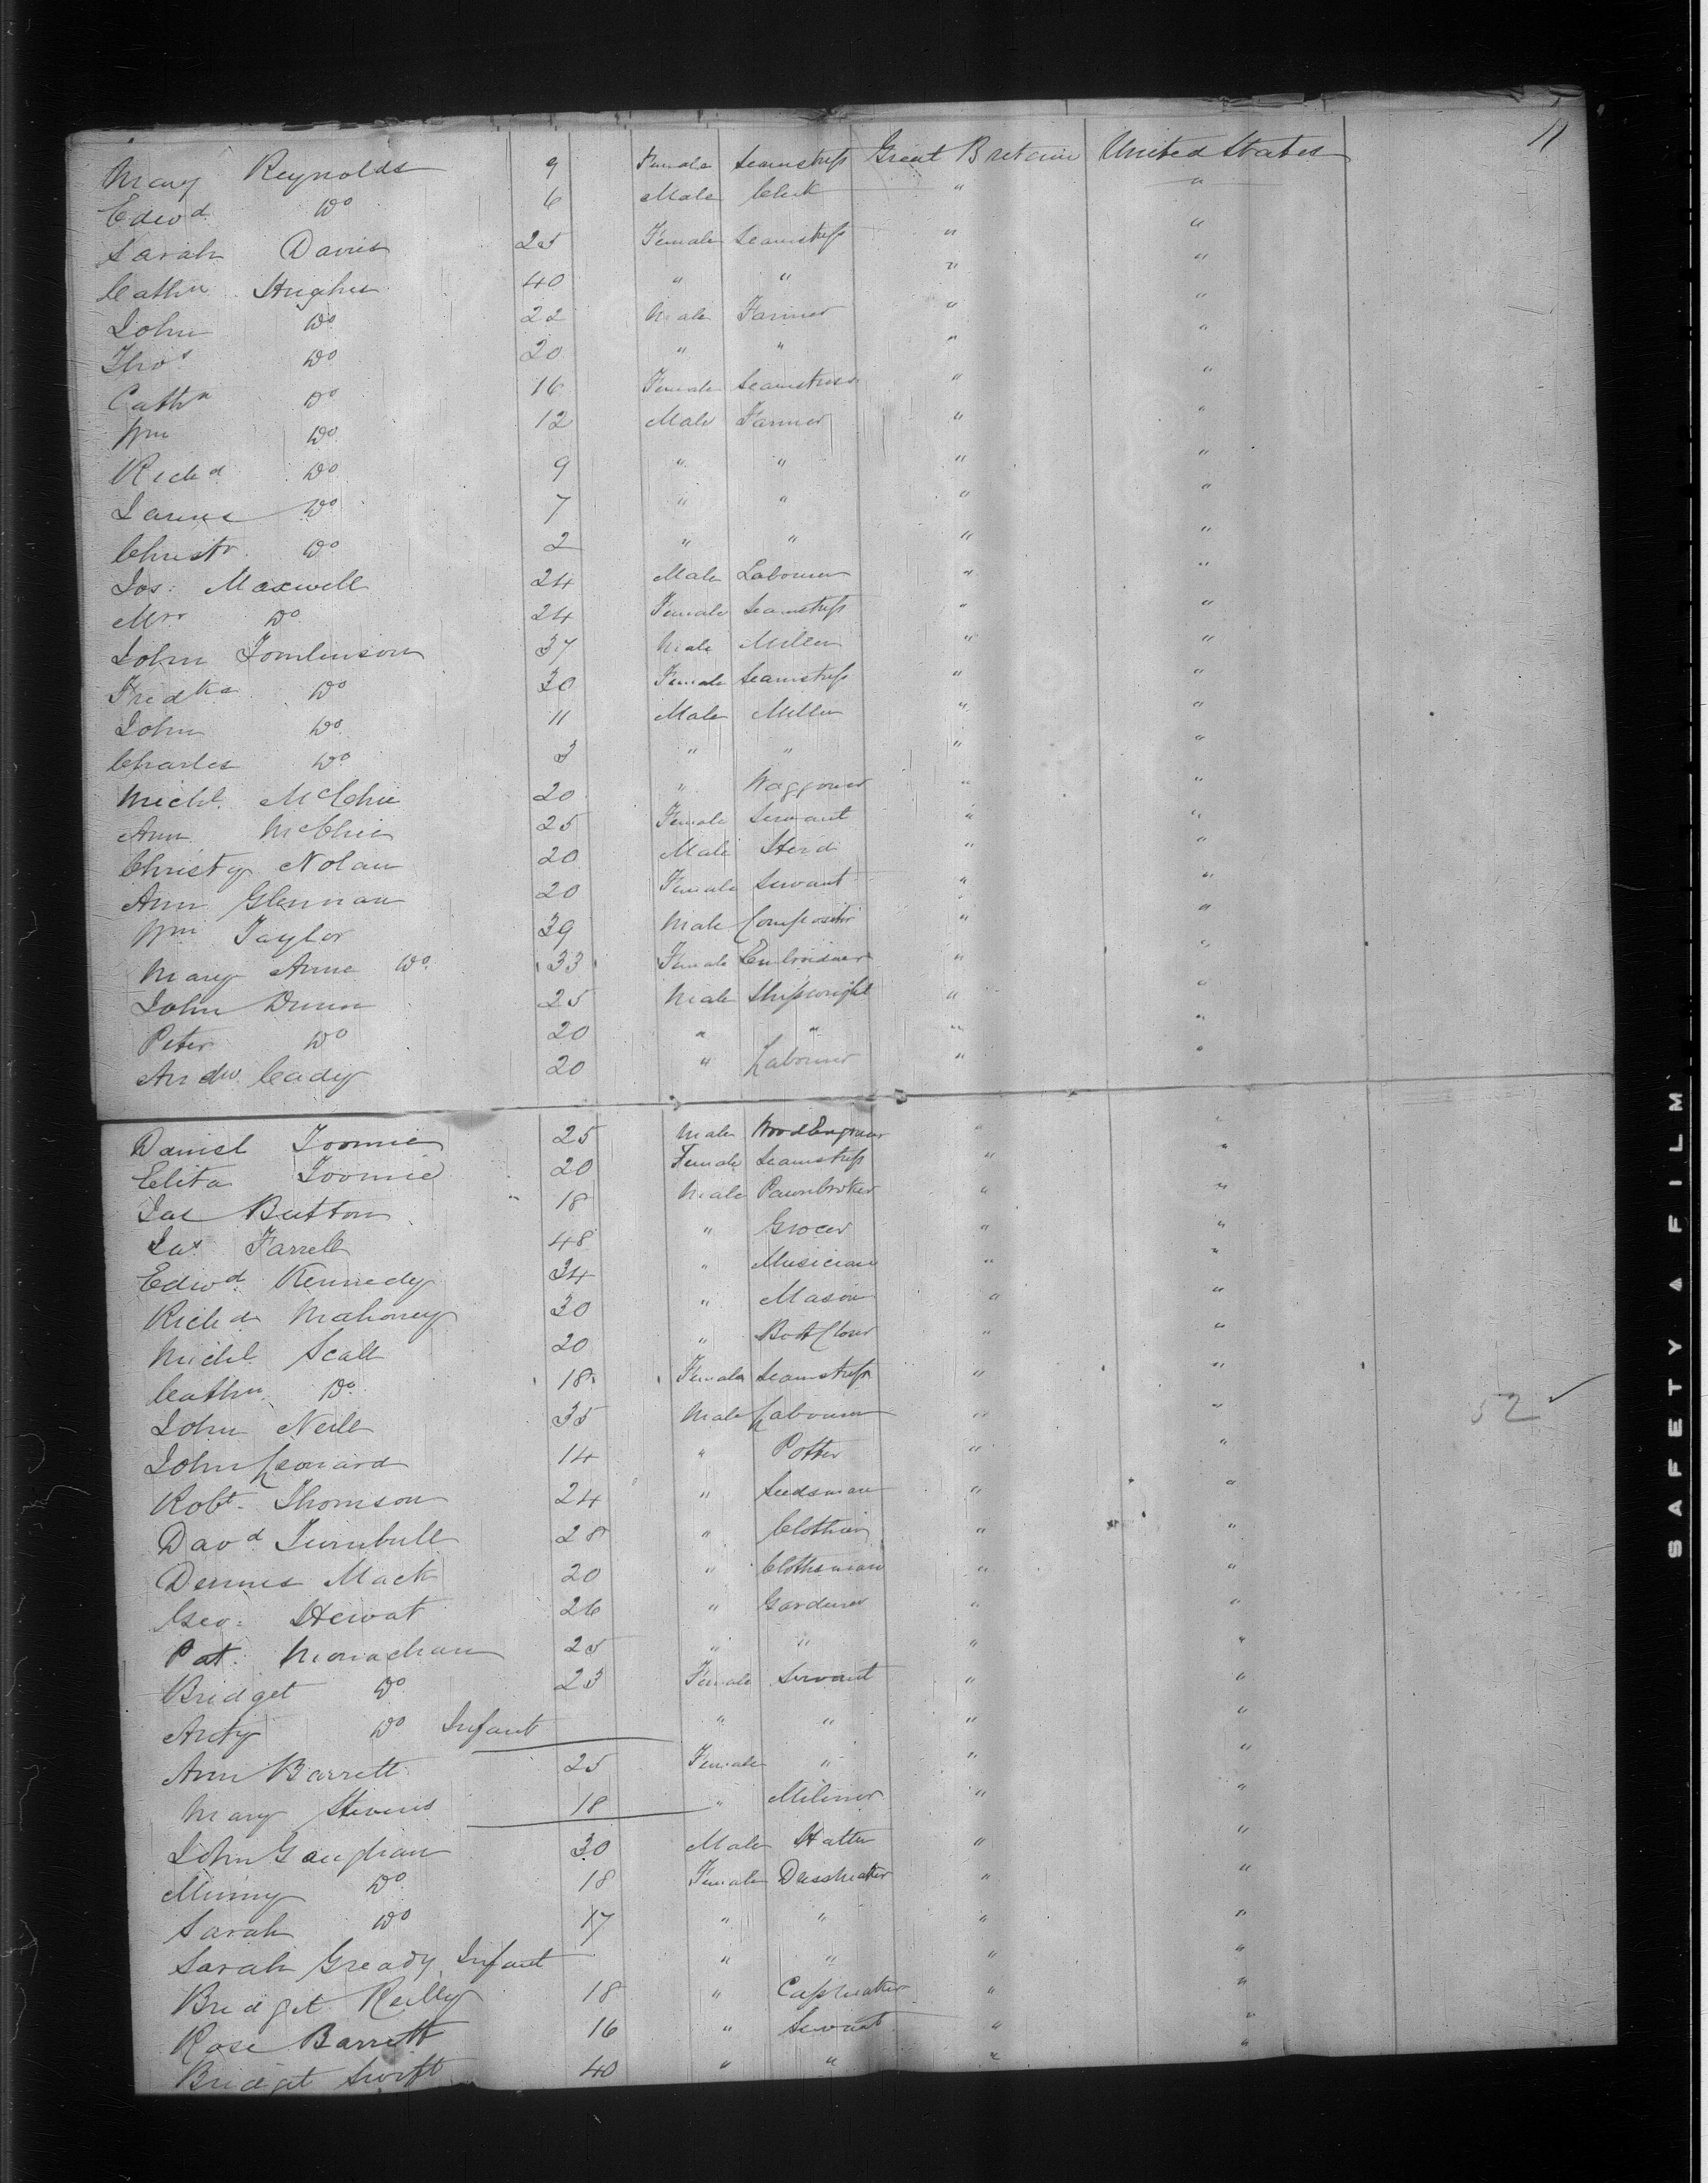 11
Mary Reynolds 9 Female Seamstress Great Britain United States
Edwd Do 6 Male Clerk " "
Sarah Davis 25 Female Seamstress " "
Cathn Hughes 40 " " " "
John Do 22 Male Farmer " "
Thos Do 20 " " " "
Cathn Do 16 Female Seamstress " "
Wm Do 12 Male Farmer " "
Richd Do 9 " " " "
James Do 7 " " " "
Christr Do 2 " " " "
Jos: Maxwell 24 Male Labourer " "
Mrs Do 24 Female Seamstress " "
John Tomlinson 37 Male Miller " "
Fredka Do 30 Female Seamstress " "
John Do 11 Male Miller " "
Charles Do 3 " " " "
Michl. 20 " Waggoner " "
Ann 25 Female Servant " "
Christy Nolan 20 Male Herd " "
Ann Glennan 20 Female Servant " "
Wm Taylor 39 Male Compositor " "
Mary Anne Do 33 Female Embroiderer " "
John Dunn 25 Male Shipwright " "
Peter Do 20 " " " "
Andw. Cady 20 " Labourer " "
Daniel Toomie 25 Male Wood Engraver " "
Eliza Toomie 20 Female Seamstress " "
Jas Button 18 Male Pawnbroker " "
Jas Farrell 48 " Grocer " "
Edwd. Kennedy 34 " Musician " "
Richd Mahoney 30 " Mason " "
Michl. Scall 20 " Boot Closer " "
Cathn Do 18 Female Seamstress " "
John Neill 35 Male Labourer " "
52 ✓
John Leonard 14 " Potter " "
Robt. Thomson 24 " Seedsman " "
Davd Turnbull 28 " Clothier " "
Dennis Mack 20 " Clothsman " "
Geo: Hewat 26 " Gardener " "
Pat. Monaghan 25 " " " "
Bridget Do 23 Female Servant " "
Do Infant " " " "
Ann Barrett 25 Female " " "
Mary Stevens 18 " Miliner " "
John Gaughan 30 Male Hatter " "
Do 18 Female Dressmaker " "
Sarah Do 17 " " " "
Sarah Gready Infant " " " "
Bridget Reilly 18 " Capmaker " "
Rose Barrett 16 " Servant " "
Bridget Swift 40 " " " "
SAFETY A FILM